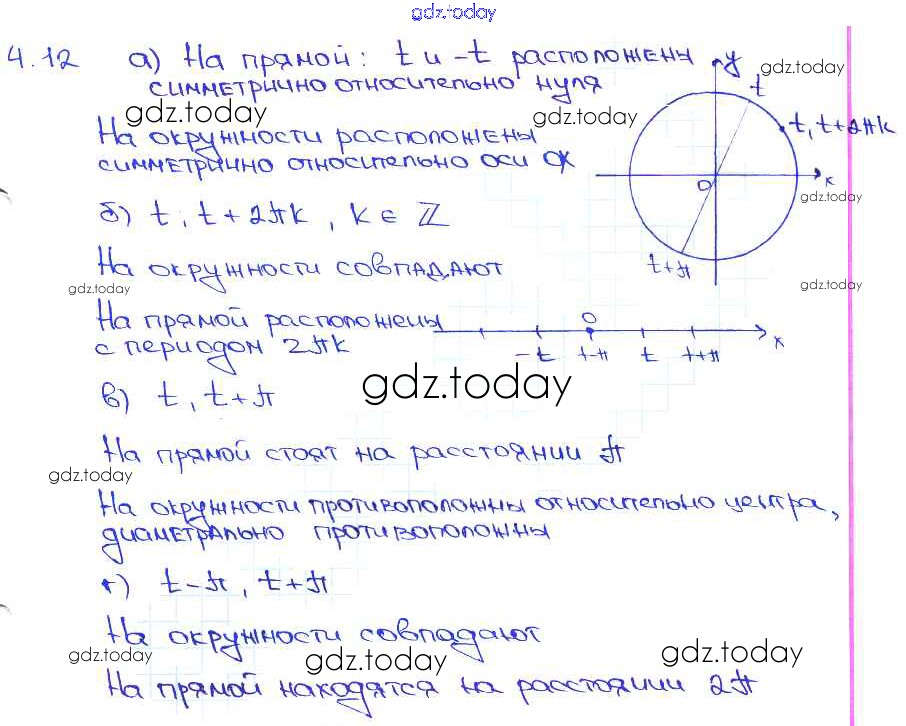 gdz.today
4.12 а) На прямой: t и -t расположены
симметрично относительно нуля
gdz.today
gdz.today
gdz.today
На окружности расположены
симметрично относительно оси OX
y
t
t, t+2πk
O
x
t+π
gdz.today
б) t, t+2πk, k ∈ ℤ
На окружности совпадают
gdz.today
gdz.today
На прямой расположены
с периодом 2πk
O
x
-t t-π t t+π
gdz.today
в) t, t+π
На прямой стоят на расстоянии π
gdz.today
На окружности противоположны относительно центра,
диаметрально противоположны
г) t-π, t+π
На окружности совпадают
gdz.today gdz.today gdz.today
На прямой находятся на расстоянии 2π